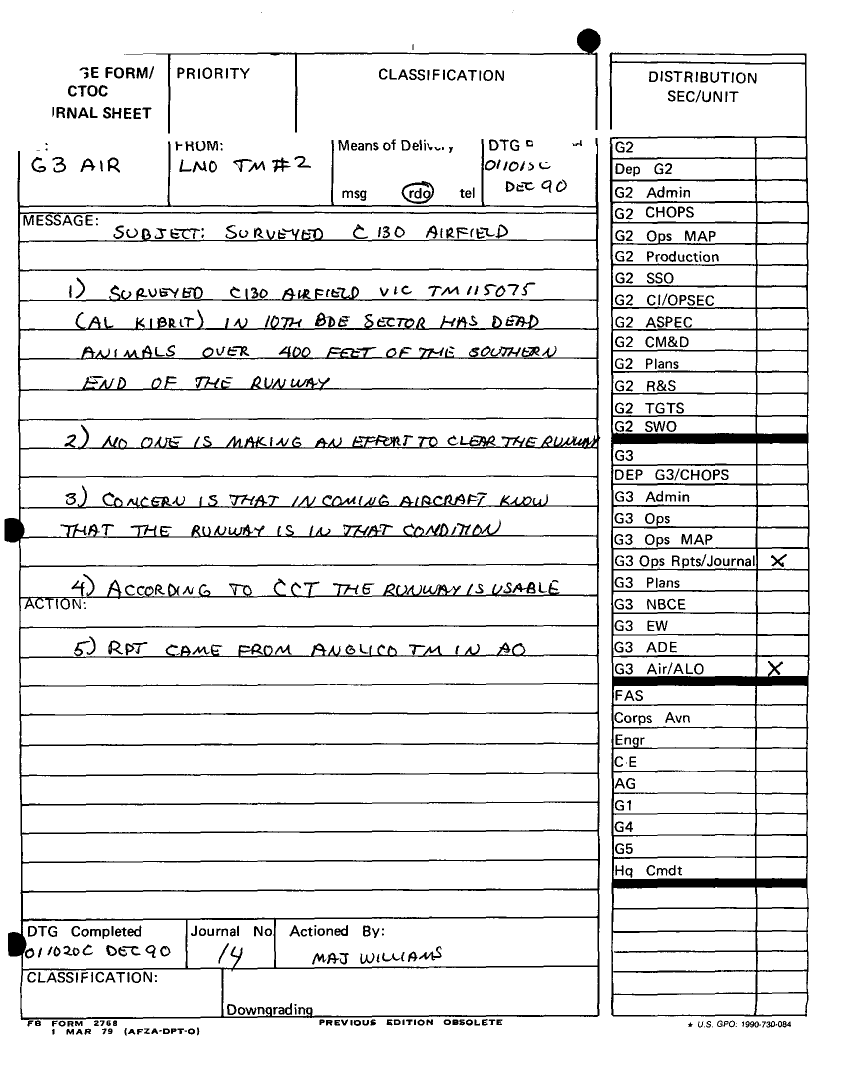 GE FORM/ PRIORITY CLASSIFICATION
CTOC
RNAL SHEET
: FROM: Means of Delivery DTG
G3 AIR LNO TM#2 011015C
msg rdo tel DEC 90
MESSAGE:
SUBJECT: SURVEYED C130 AIRFIELD
1) SURVEYED C130 AIRFIELD VIC TM115075
(AL KIBRIT) IN 10TH BDE SECTOR HAS DEAD
ANIMALS OVER 400 FEET OF THE SOUTHERN
END OF THE RUNWAY
2) NO ONE IS MAKING AN EFFORT TO CLEAR THE RUNWAY
3) CONCERN IS THAT INCOMING AIRCRAFT KNOW
THAT THE RUNWAY IS IN THAT CONDITION
4) ACCORDING TO CCT THE RUNWAY IS USABLE
ACTION:
5) RPT CAME FROM ANGLICO TM IN AO
DTG Completed Journal No Actioned By:
011020C DEC 90 14 MAJ WILLIAMS
CLASSIFICATION:
Downgrading
FB FORM 2768 PREVIOUS EDITION OBSOLETE
1 MAR 79 (AFZA-DPT-O)
DISTRIBUTION
SEC/UNIT
G2
Dep G2
G2 Admin
G2 CHOPS
G2 Ops MAP
G2 Production
G2 SSO
G2 CI/OPSEC
G2 ASPEC
G2 CM&D
G2 Plans
G2 R&S
G2 TGTS
G2 SWO
G3
DEP G3/CHOPS
G3 Admin
G3 Ops
G3 Ops MAP
G3 Ops Rpts/Journal X
G3 Plans
G3 NBCE
G3 EW
G3 ADE
G3 Air/ALO X
FAS
Corps Avn
Engr
C-E
AG
G1
G4
G5
Hq Cmdt
★ U.S. GPO: 1990-730-084